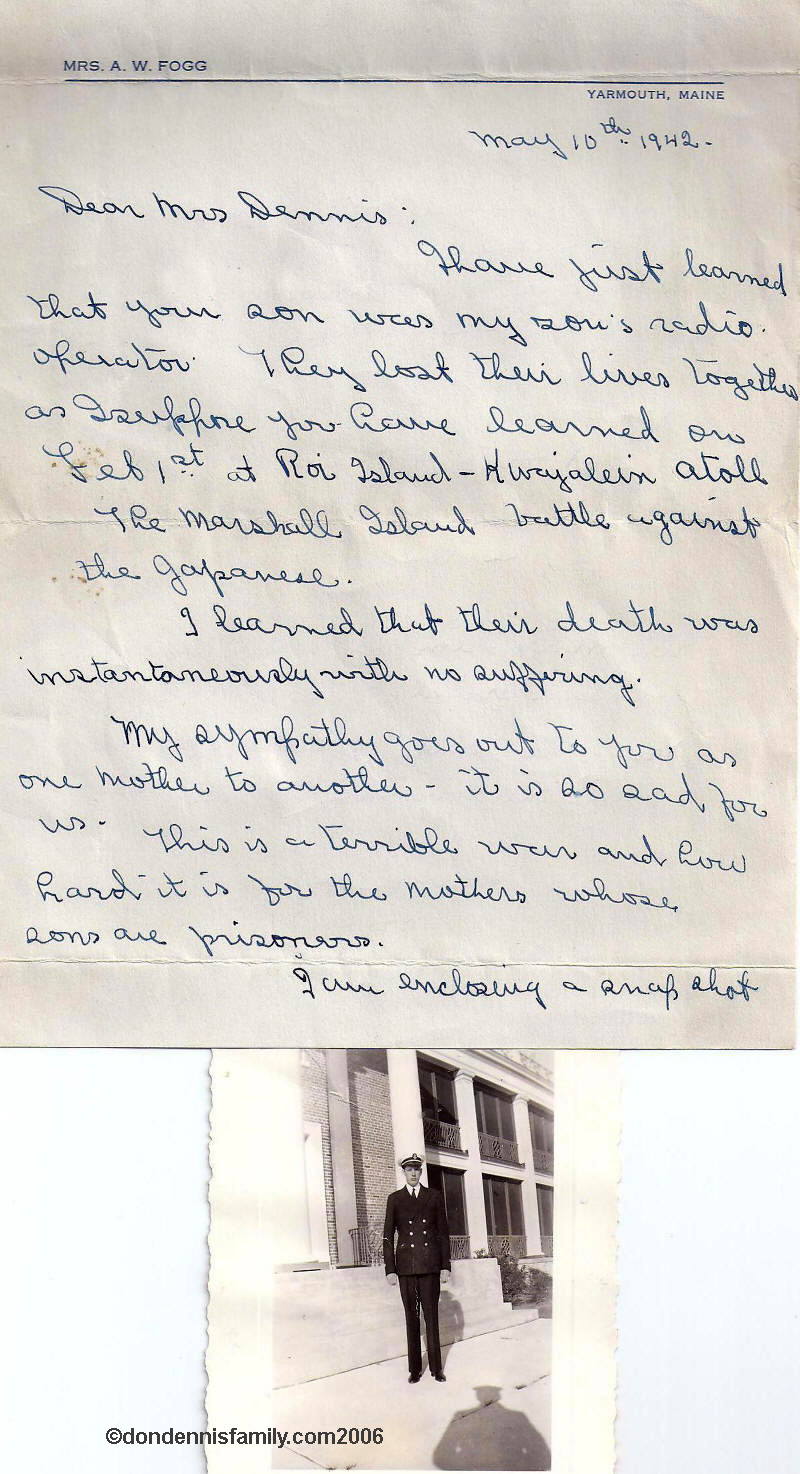 MRS. A. W. FOGG
YARMOUTH, MAINE
May 10th 1942.
Dear Mrs Dennis:
I have just learned
that your son was my son's radio
operator. They lost their lives together
as I suppose you have learned on
Feb 1st at Roi Island - Kwajalein atoll
The Marshall Island battle against
the Japanese.
I learned that their death was
instantaneously with no suffering.
My sympathy goes out to you as
one mother to another - it is so sad for
us. This is a terrible war and how
hard it is for the mothers whose
sons are prisoners.
I am enclosing a snap shot
©dondennisfamily.com2006